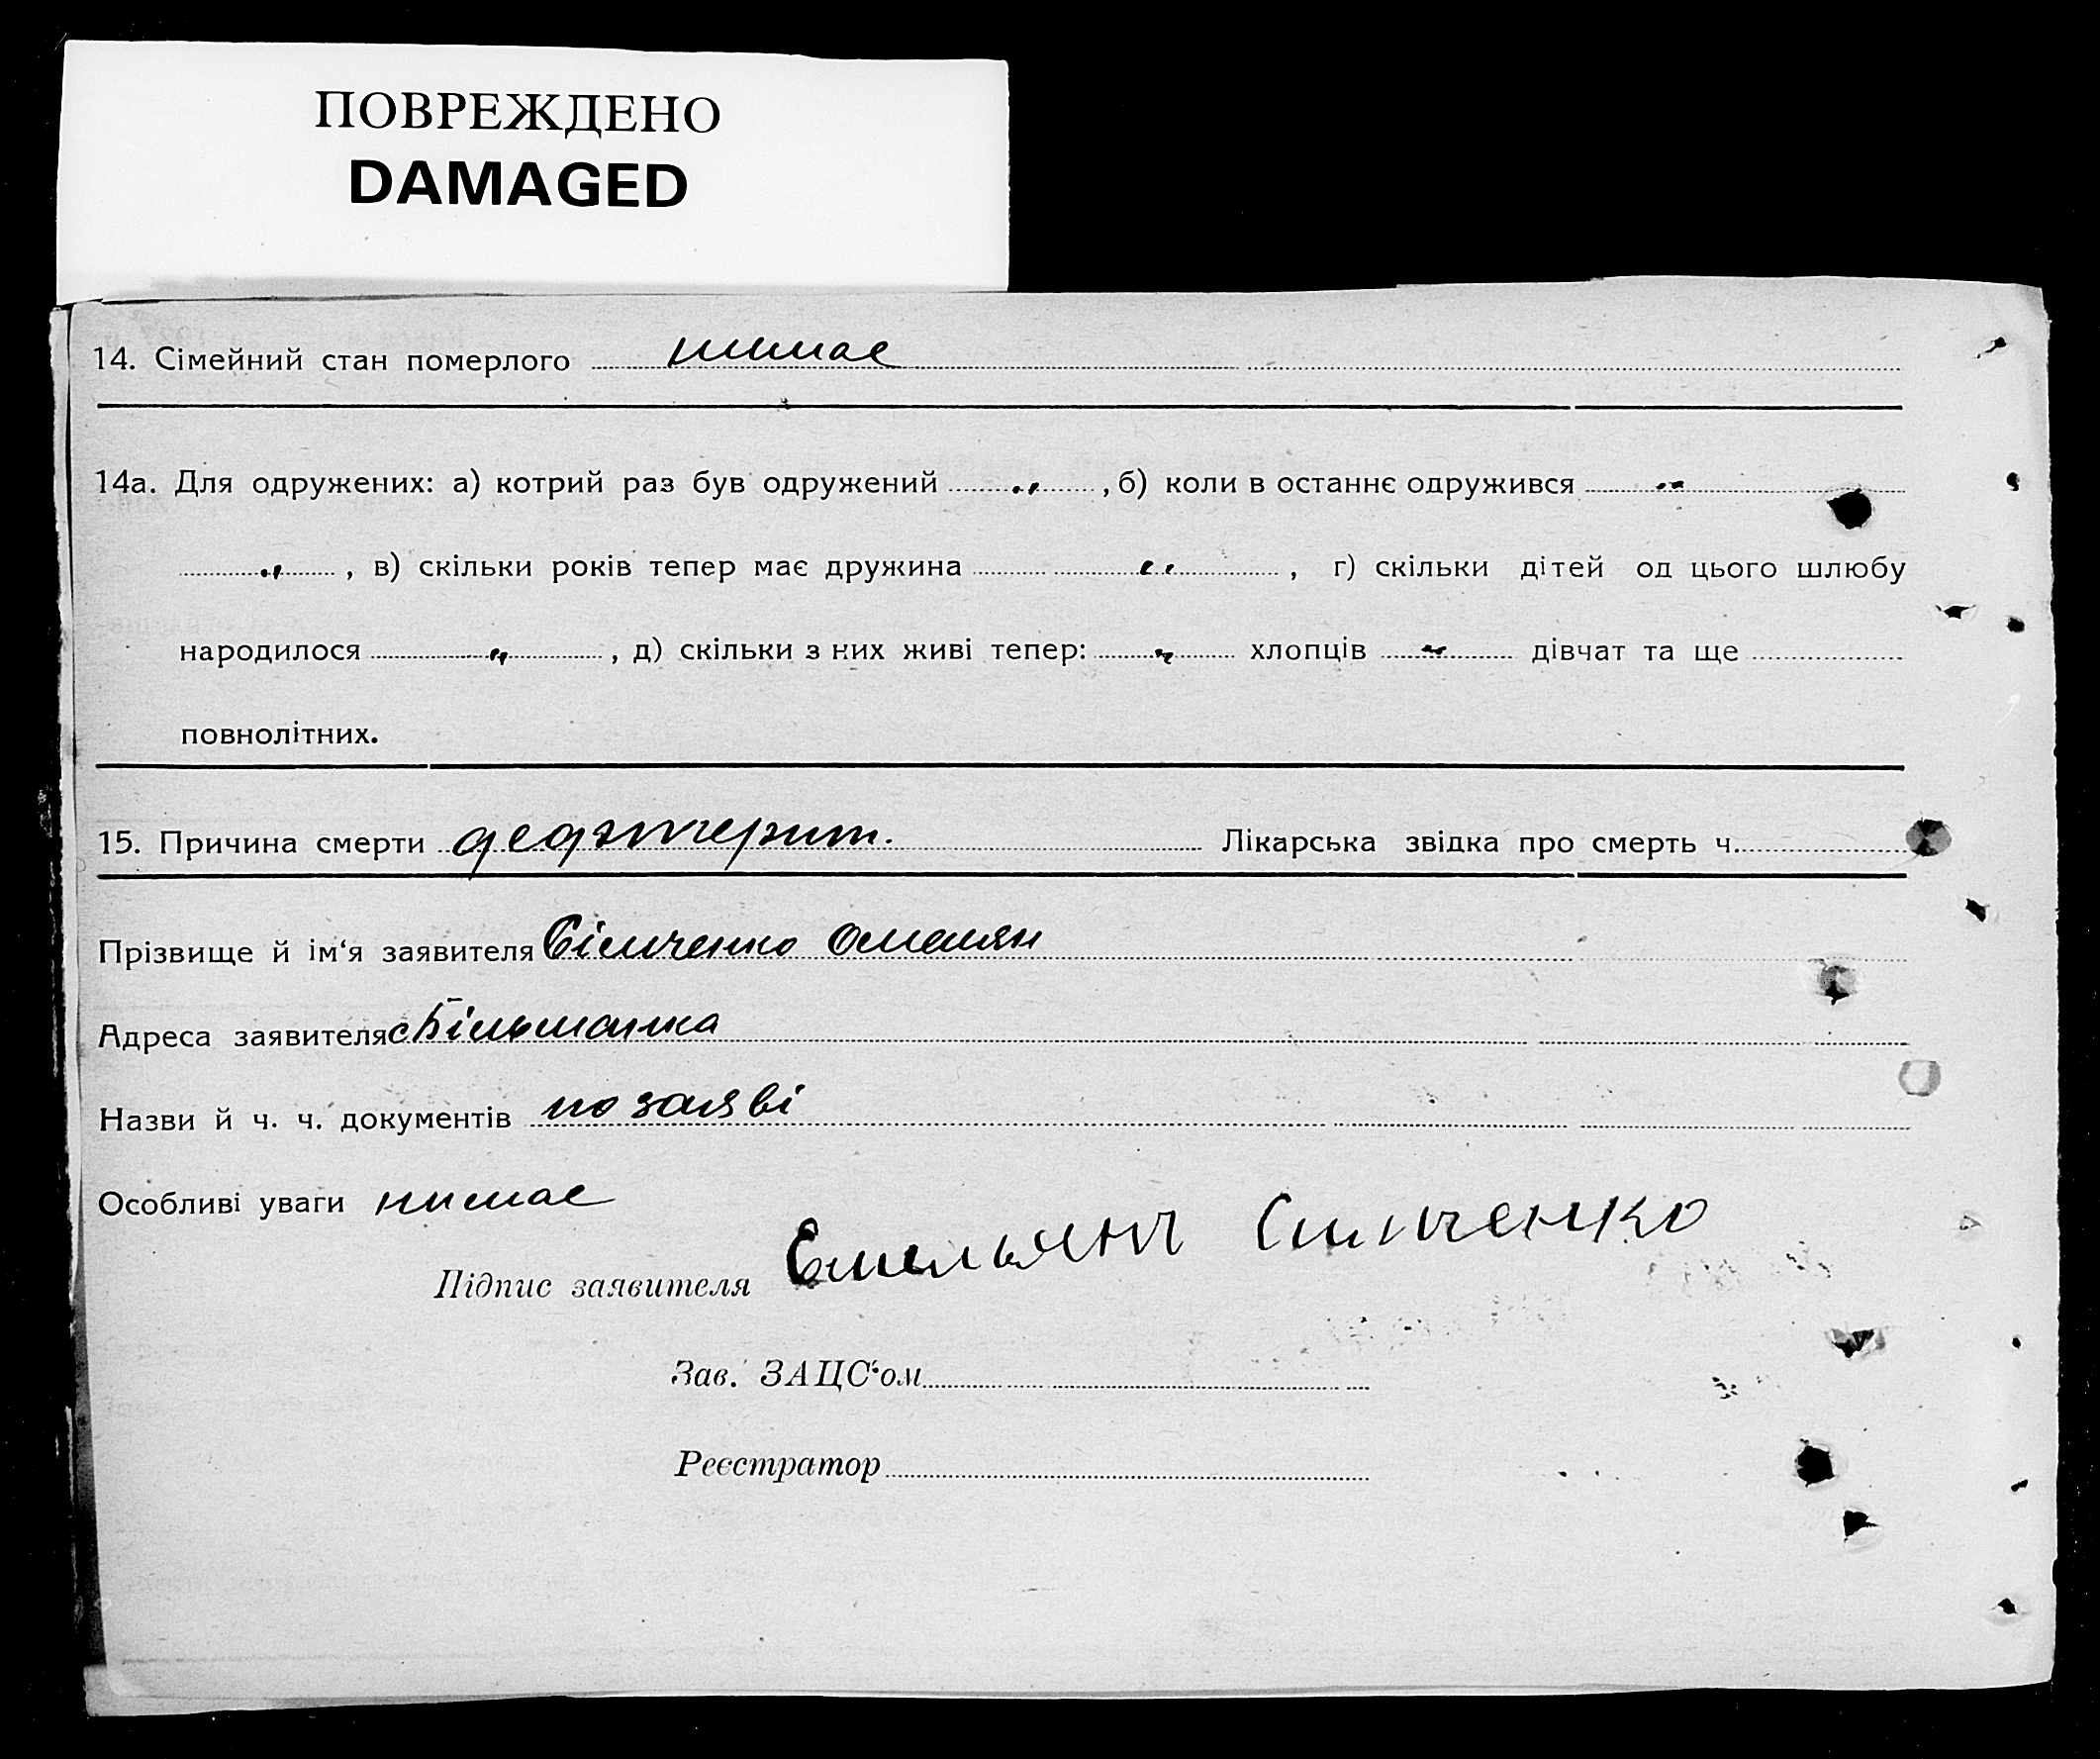 ПОВРЕЖДЕНО
DAMAGED
14. Сімейний стан померлого нимае
14а. Для одружених: а) котрий раз був одружений „ , б) коли в останнє одружився „
„ , в) скільки років тепер має дружина „ , г) скільки дітей од цього шлюбу
народилося „ , д) скільки з них живі тепер: „ хлопців „ дівчат та ще
повнолітних.
15. Причина смерти Лікарська звідка про смерть ч.
Прізвище й ім‘я заявителя Сімченко Омелян
Адреса заявителя с Більшанка
Назви й ч. ч. документів по заяві
Особливі уваги нимае
Підпис заявителя Емельянъ Симченко
Зав. ЗАЦС‘ом
Реєстратор